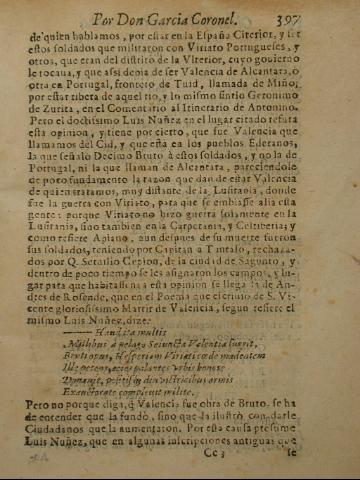 Por Don Garcia Coronel. 397
de quien hablamos, por estar en la España Citerior, y ser
estos soldados que militaron con Viriato Portugueses, y
otros, que eran del distrito de la Vlterior, cuyo govierno
le tocaua, y que assi deuia de ser Valencia de Alcantara, ò
otra en Portugal, frontero de Tuid, llamada de Miño,
por estar ribera de aquel rio, y lo mismo sintio Geronimo
de Zurita, en el Comentario al Itinerario de Antonino.
Pero el doctissimo Luis Nuñez en el lugar citado refuta
esta opinion, y tiene por cierto, que fue Valencia que
llamamos del Cid, y que està en los pueblos Ederanos,
la que señalò Decimo Bruto à estos soldados, y no la de
Portugal, ni la que llaman de Alcantara, pareciendole
de poco fundamento la razon que dan de estar Valencia
de quien tratamos, muy distante de la Lusitania, donde
fue la guerra con Viriato, para que se embiasse allà esta
gente: porque Viriato no hizo guerra solamente en la
Lusitania, sino tambien en la Carpetania, y Celtiberia; y
como refiere Apiano, aun despues de su muerte fueron
sus soldados, teniendo por Capitan a Tantalo, rechaça-
dos por Q. Seruilio Cepion, de la ciudad de Sagunto, y
dentro de poco tiempo se les asignaron los campos, y lu-
gar para que habitassen: a esta opinion se llega la de An-
dres de Resende, que en el Poema que escriuio de S. Vi-
cente gloriosissimo Martir de Valencia, segun refiere el
mismo Luis Nuñez, dize:
Haud ita multis
Millibus à pelago seiuncta Valentia surgit,
Bruti opus, Hesperiam Viriati cæde madentem
Ille petens, acies palantes vrbis honore
Donauit, positis in dia victricibus armis
Exauctorate compleuit milite.
Pero no porque diga, q̃ Valencia fue obra de Bruto, se ha
de entender que la fundò, sino que la ilustrò con darle
Ciudadanos que la aumentaron. Por esta causa presume
Luis Nuñez, que en algunas inscripciones antiguas que
Cc 3 se